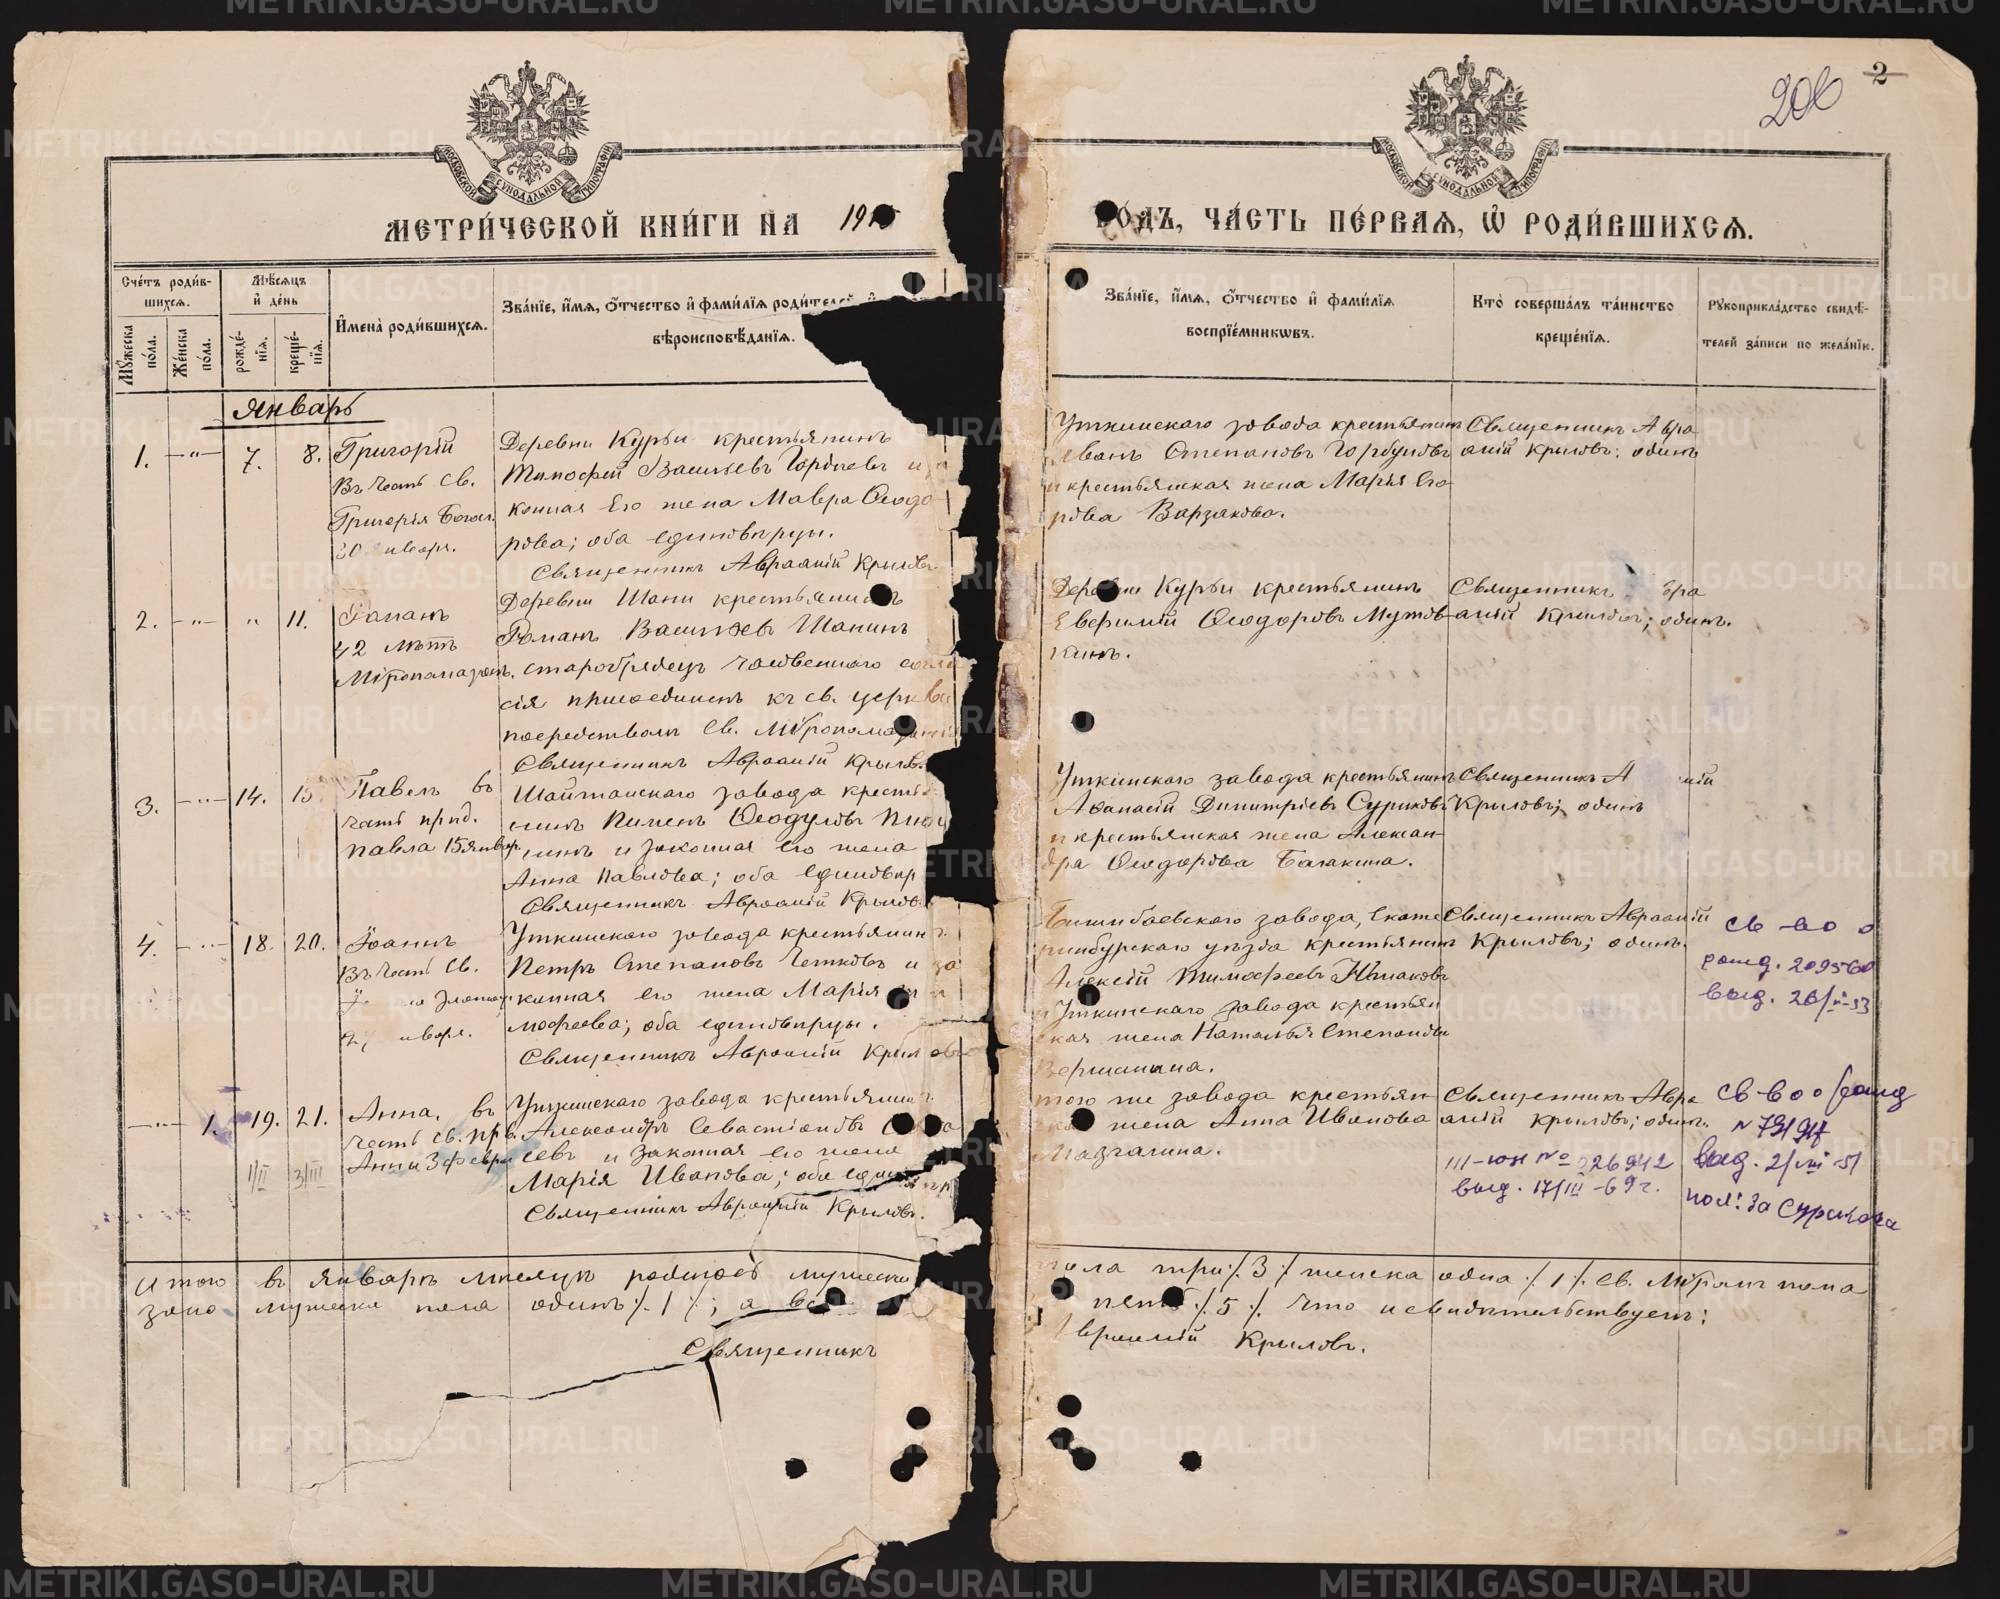 МЕТРИ́ЧЕСКОЙ КНИ́ГИ НА 191
ГО́ДЪ, ЧА́СТЬ ПЕ́РВАЯ, Ѿ РОДИ́ВШИХСЯ.
206 2
МОСКОВСКОЙ СѴНОДАЛЬНОЙ ТИПОГРАФІИ
МОСКОВСКОЙ СѴНОДАЛЬНОЙ ТИПОГРАФІИ
Сче́тъ роди́в-
шихся.
Мꙋ́жеска по́ла.
Же́нска по́ла.
Мѣ́сяцъ
и҆ де́нь
рожде́-
нїя.
креще́-
нїя.
И҆мена̀ роди́вшихся.
Зва́нїе, и҆́мя, ѻ҆́тчество и҆ фами́лїя роди́телей, и҆
вѣроисповѣ́данїя.
Зва́нїе, и҆́мя, ѻ҆́тчество и҆ фами́лїя
воспрїе́мникѡвъ.
Кто̀ соверша́лъ та́инство
креще́нїя.
Рꙋкоприкла́дство свидѣ́-
телей за́писи по жела́нїю.
Январь
1. — „ — 7. 8.
Григорій
Въ честь св.
Григорія Богосл.
30 января.
Деревни Курьи крестьянинъ
Тимофей Васильевъ Гордѣевъ и
конная его жена Мавра Ѳеодо
рова; оба единовѣрцы.
Священникъ Авраамій Крыловъ
Уткинскаго завода крестьянинъ
Иванъ Степановъ Горбуновъ
и крестьянская жена Марья Его-
рова Варзакова.
Священникъ Авра
амій Крыловъ; одинъ
2. — „ — „ 11.
Романъ
42 лѣтъ
Мѵропомазанъ.
Деревни Шани крестьянинъ
Романъ Васильевъ Шанинъ
старобрядецъ часовеннаго согла
сія присоединенъ къ св. церкви
посредствомъ Св. Мѵропомазанія
Священникъ Авраамій Крыловъ
Деревни Курьи крестьянинъ
Евфимій Ѳеодоровъ Мужев-
кинъ.
Священникъ Авра
амій Крыловъ; одинъ.
3. — „ — 14. 15
Павелъ въ
честь прпд.
Павла 15 январ.
Шайтанскаго завода кресть
нинъ Пименъ Ѳеодуловъ
нинъ и законная его жена
Анна Павлова; оба единовѣр
Священникъ Авраамій Крылов
Уткинскаго завода крестьянинъ
Аѳанасій Димитріевъ Суриковъ
и крестьянская жена Алексан-
дра Ѳеодорова Багакина.
Священникъ А мій
Крыловъ; одинъ
4. — „ — 18. 20.
Іоаннъ
Въ честь Св.
Іоанна Златоус.
27 январ.
Уткинскаго завода крестьянинъ
Петръ Степановъ Четковъ и за
конная его жена Марія Ти
мофеева; оба единовѣрцы.
Священникъ Авраамій Крыловъ
Билимбаевскаго завода, Екате
ринбурскаго уѣзда крестьянинъ
Алексій Тимофеевъ Южаковъ
и Уткинскаго завода крестьян
ская жена Наталья Степанова
Вершинина.
Священникъ Авраамій
Крыловъ; одинъ.
св-во о
рожд. 209560
выд. 26/ -53
— „ — 1. 19. 21.
1/II 3/III
Анна, въ
честь св. прв.
Анны 3 февра
Уткинскаго завода крестьянинъ
Александръ Севастіановъ
севъ и законная его жена
Марія Иванова; оба единовѣр
Священникъ Авраамій Крыловъ.
того же завода крестьян
ская жена Анна Иванова
Мазгалина.
Священникъ Авра
амій Крыловъ; одинъ.
III-юн № 026942
выд. 17/III-69 г.
св-во о рожд
№ 791917
выд. 2/VIII 51
пол: За Сурикова
Итого въ январѣ мѣсяцѣ родилось мужеска
пола три ./. 3 ./. женска одна ./. 1 ./. Св. Мѵромъ пома
зано мужеска пола одинъ ./. 1 ./.; а все
пять ./. 5 ./. что и свидѣтельствуемъ:
Священникъ
Авраамій Крыловъ.